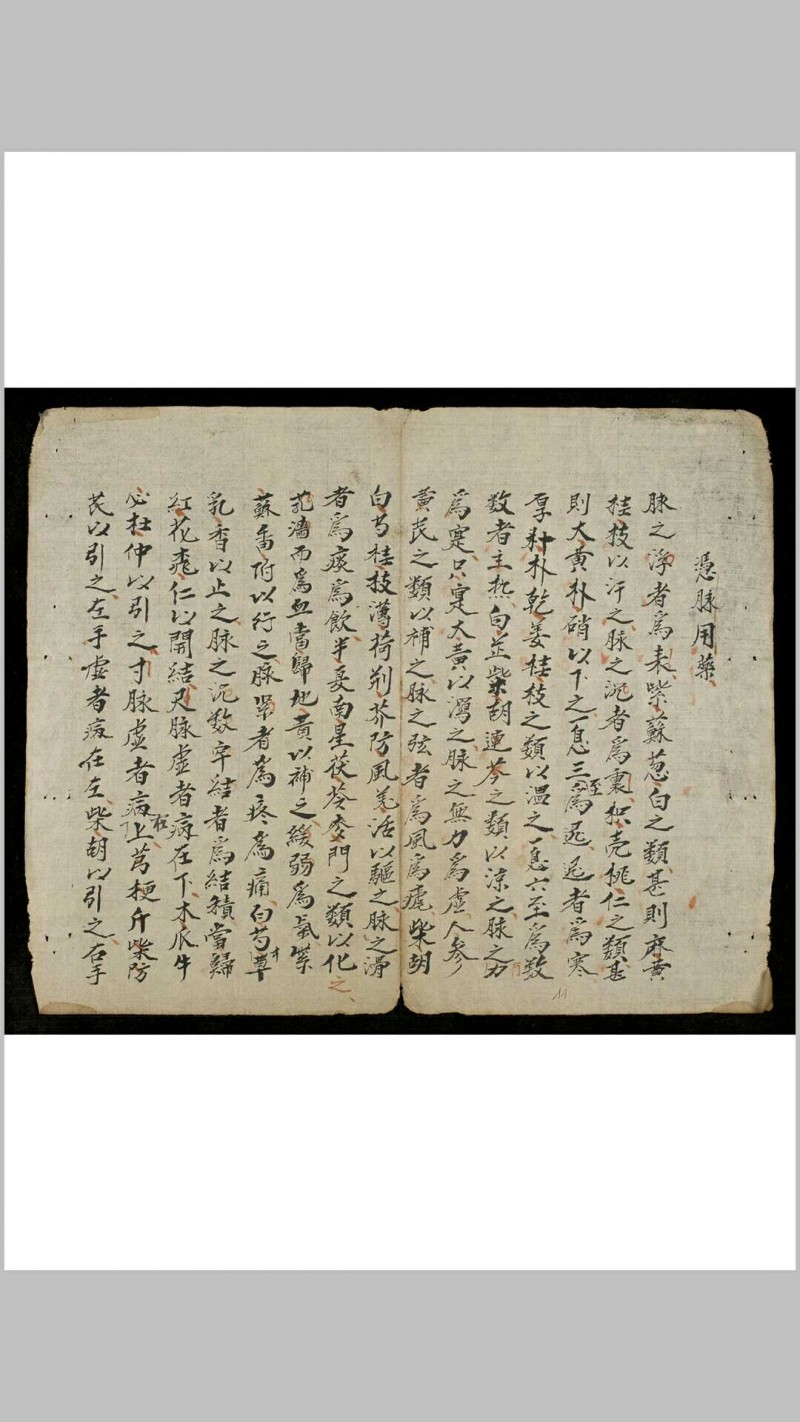 憑脉用藥
脉之浮者爲表紫蘇葱白之類甚則麻黄
桂枝以汗之脉之沉者爲裏枳壳桃仁之類甚
則大黄朴硝以下之一息三至爲迟迟者爲寒
厚朴乾姜桂枝之類以温之一息六至爲数
数者主热白芷柴胡連芩之類以凉之脉之力
爲寔只寔大黄以瀉之脉之無力爲虚人参
黄芪之類以補之脉之弦者爲風爲瘧柴胡
白芍桂枝薄荷荆芥防風羌活以驅之脉之滑
者爲痰爲飲半夏南星茯苓麥門之類以化之
芤濇而爲血當歸地黄以補之緩弱爲氣紫
蘇香附以行之脉緊者為疼為痛白芍草
乳香以止之脉之沉数牢結者爲結積當歸
紅花桃仁以開結尺脉虚者病在下木瓜牛
必杜仲以引之寸脉虚者病在上芎梗升柴防
芪以引之左手虚者病在左柴胡以引之右手
11